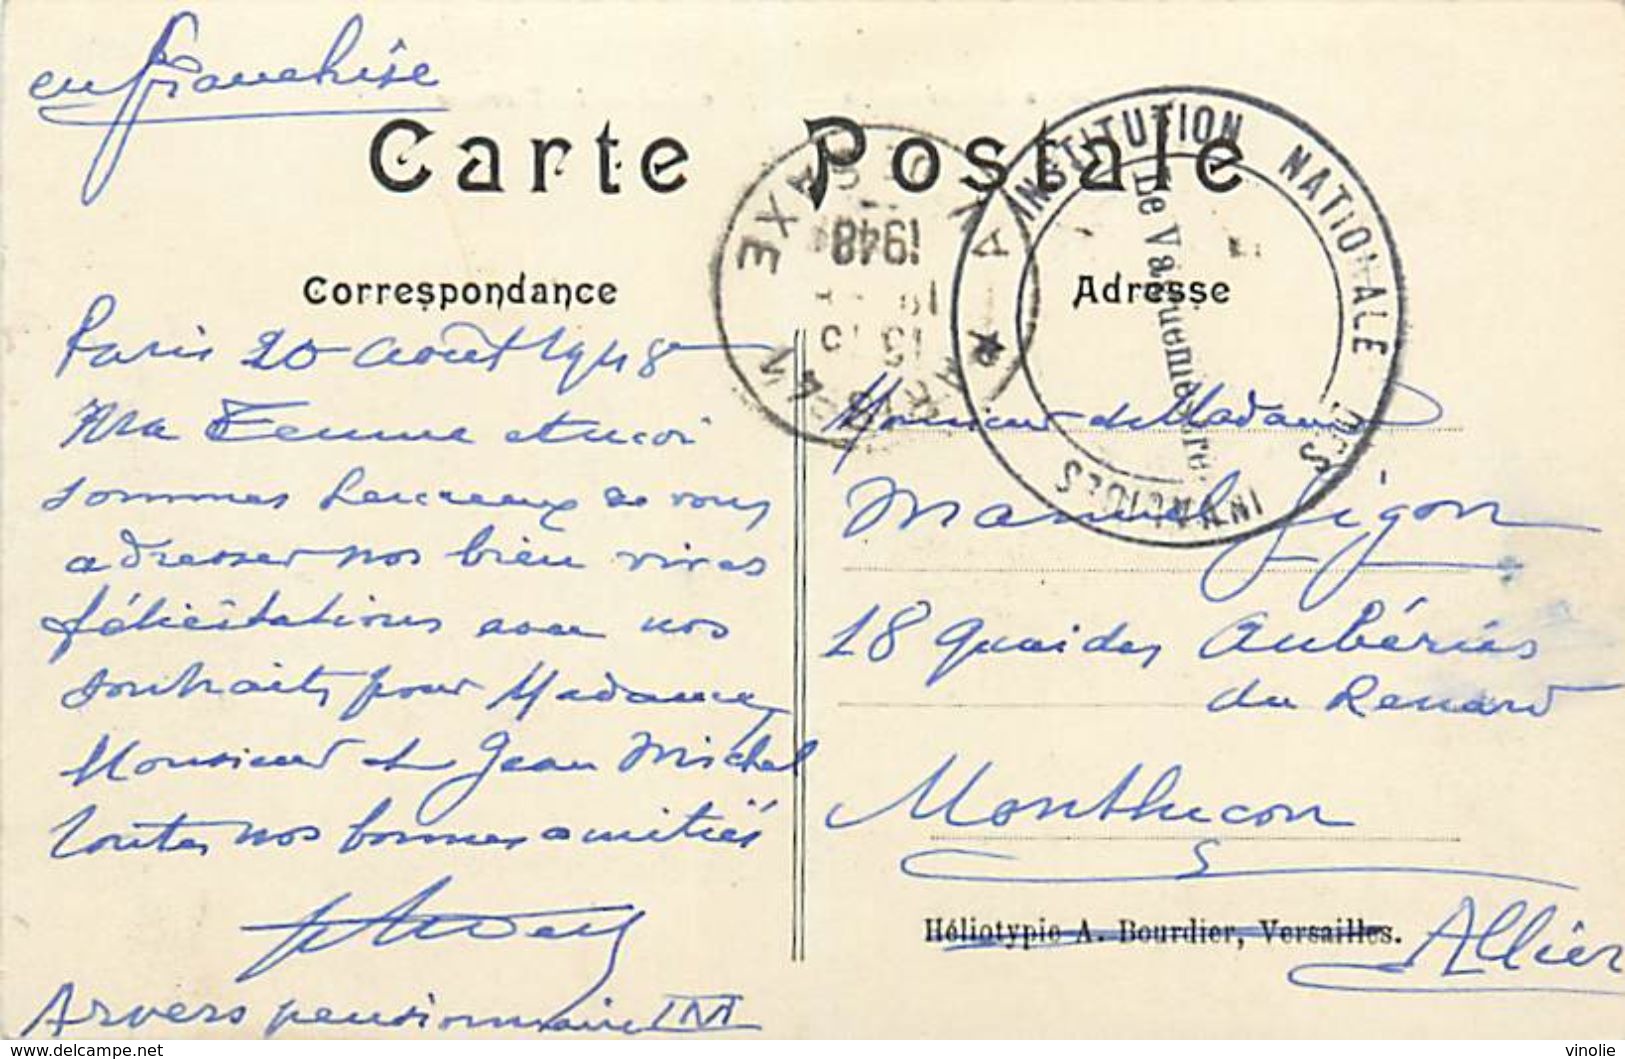 en franchise
Carte Postale
Correspondance
Adresse
PARIS
1948
INSTITUTION NATIONALE DES INVALIDES
Paris 20 août 1948
Ma Femme et moi
sommes heureux de vous
adresser nos bien vives
félicitations avec nos
souhaits pour Madame,
Monsieur et Jean Michel
toutes nos bonnes amitiés
Arvers pensionnaire INI
Monsieur et Madame
Manuel Gigon
18 quai des
du Renard
Montluçon
Allier
Héliotypie A. Bourdier, Versailles.
delcampe.net
vinolie